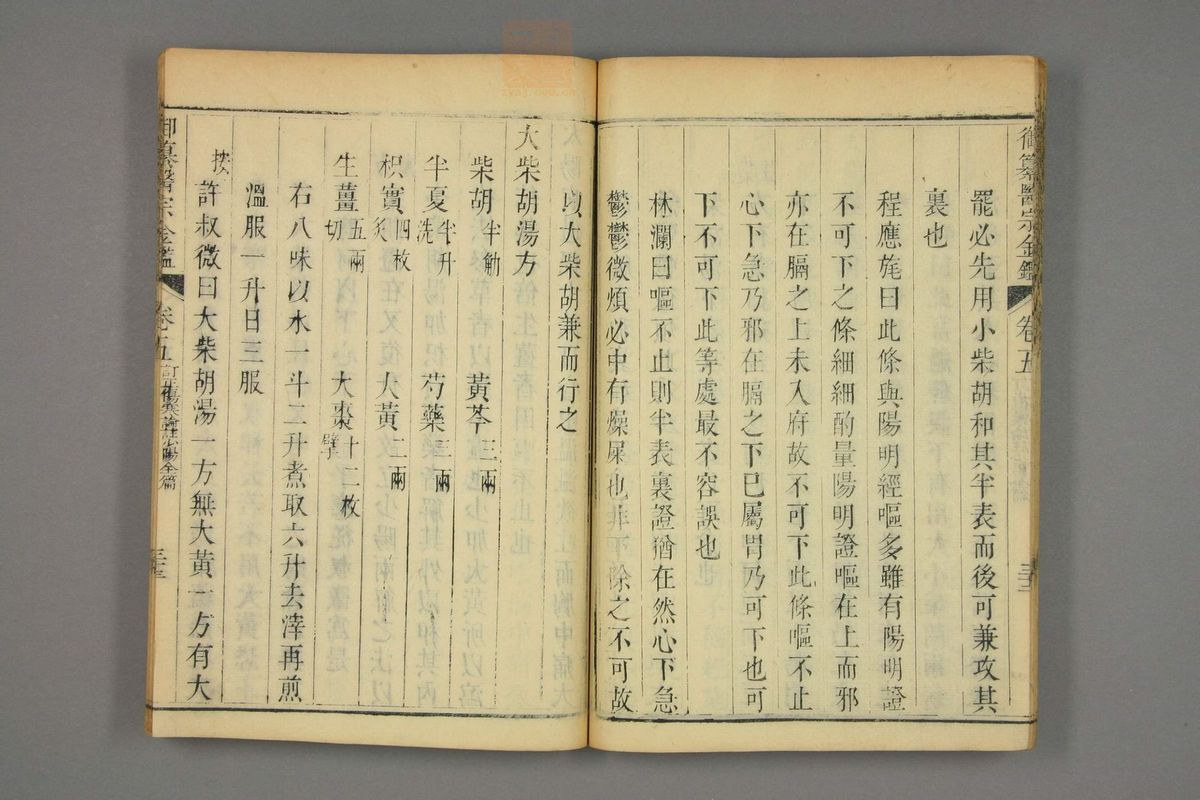 御纂醫宗金鑑 卷五
罷必先用小柴胡和其半表而後可兼攻其
裏也
程應旄曰此條與陽明經嘔多雖有陽明證
不可下之條細細酌量陽明證嘔在上而邪
亦在膈之上未入府故不可下此條嘔不止
心下急乃邪在膈之下已屬胃乃可下也可
下不可下此等處最不容誤也
林瀾曰嘔不止則半表裏證猶在然心下急
鬱鬱微煩必中有燥屎也非下除之不可故
以大柴胡兼而行之
大柴胡湯方
柴胡半觔 黃芩三兩
半夏半升洗 芍藥三兩
枳實四枚炙 大黃二兩
生薑五兩切 大棗十二枚擘
右八味以水一斗二升煮取六升去滓再煎
溫服一升日三服
按許叔微曰大柴胡湯一方無大黃一方有大
御纂醫宗金鑑 卷五 訂正傷寒論註少陽全篇